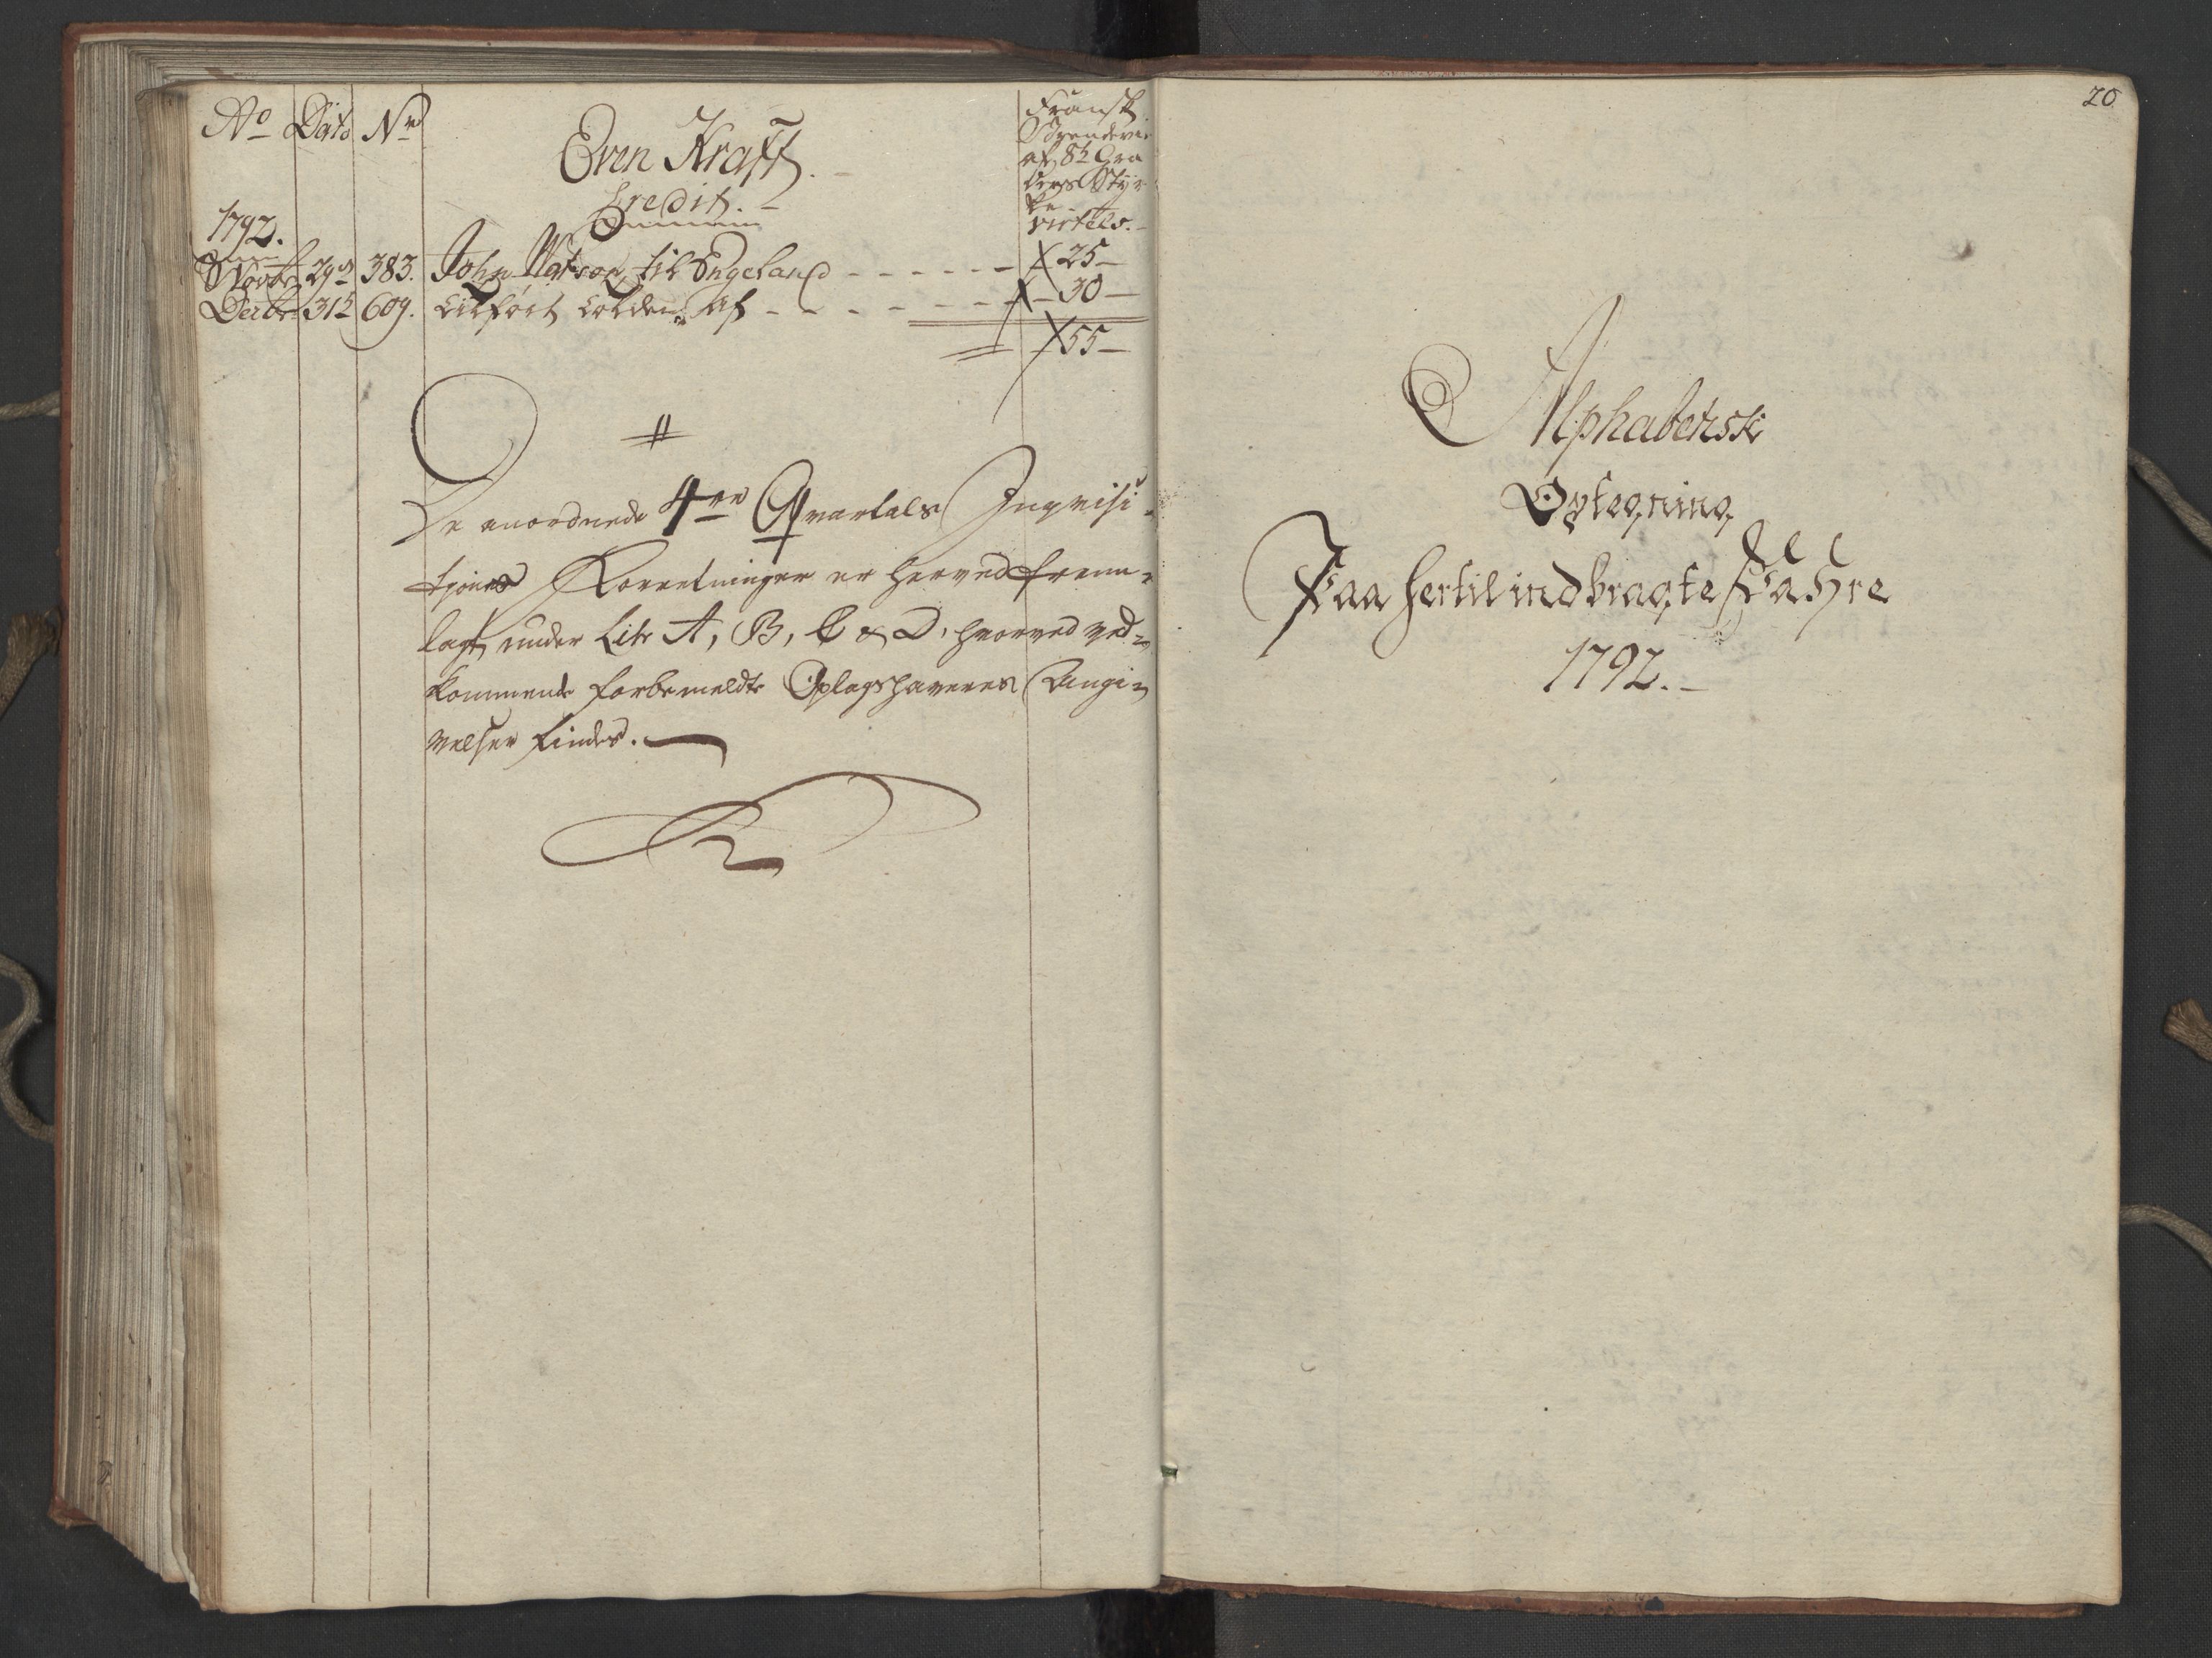 Ao Dato No
Even Krafft.
Credit.
Fransk
Brendevin
af 8½ Gra
ders Styr-
ke
virtels.
1792.
Novbr 29de 383. John Watson til Engeland - - - - - - - 25 -
Decbr 31te 609. tilført tolden af - - - - - - - 30 -
55 -
De anordnede 4re Qvartals Inqvisi-
tjons Forretninger er herved frem-
lagt under Litr A, B, C & D, hvorved ved-
kommende forbemeldte Oplagshaveres Angi-
velser findes.
20
Alphabetisk
Optegning
Paa hertil indbragte Vahre
1792.